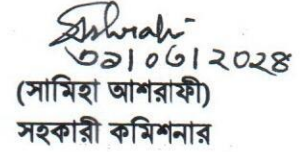 ৩১|০৩|২০২৪
(সামিহা আশরাফী)
সহকারী কমিশনার